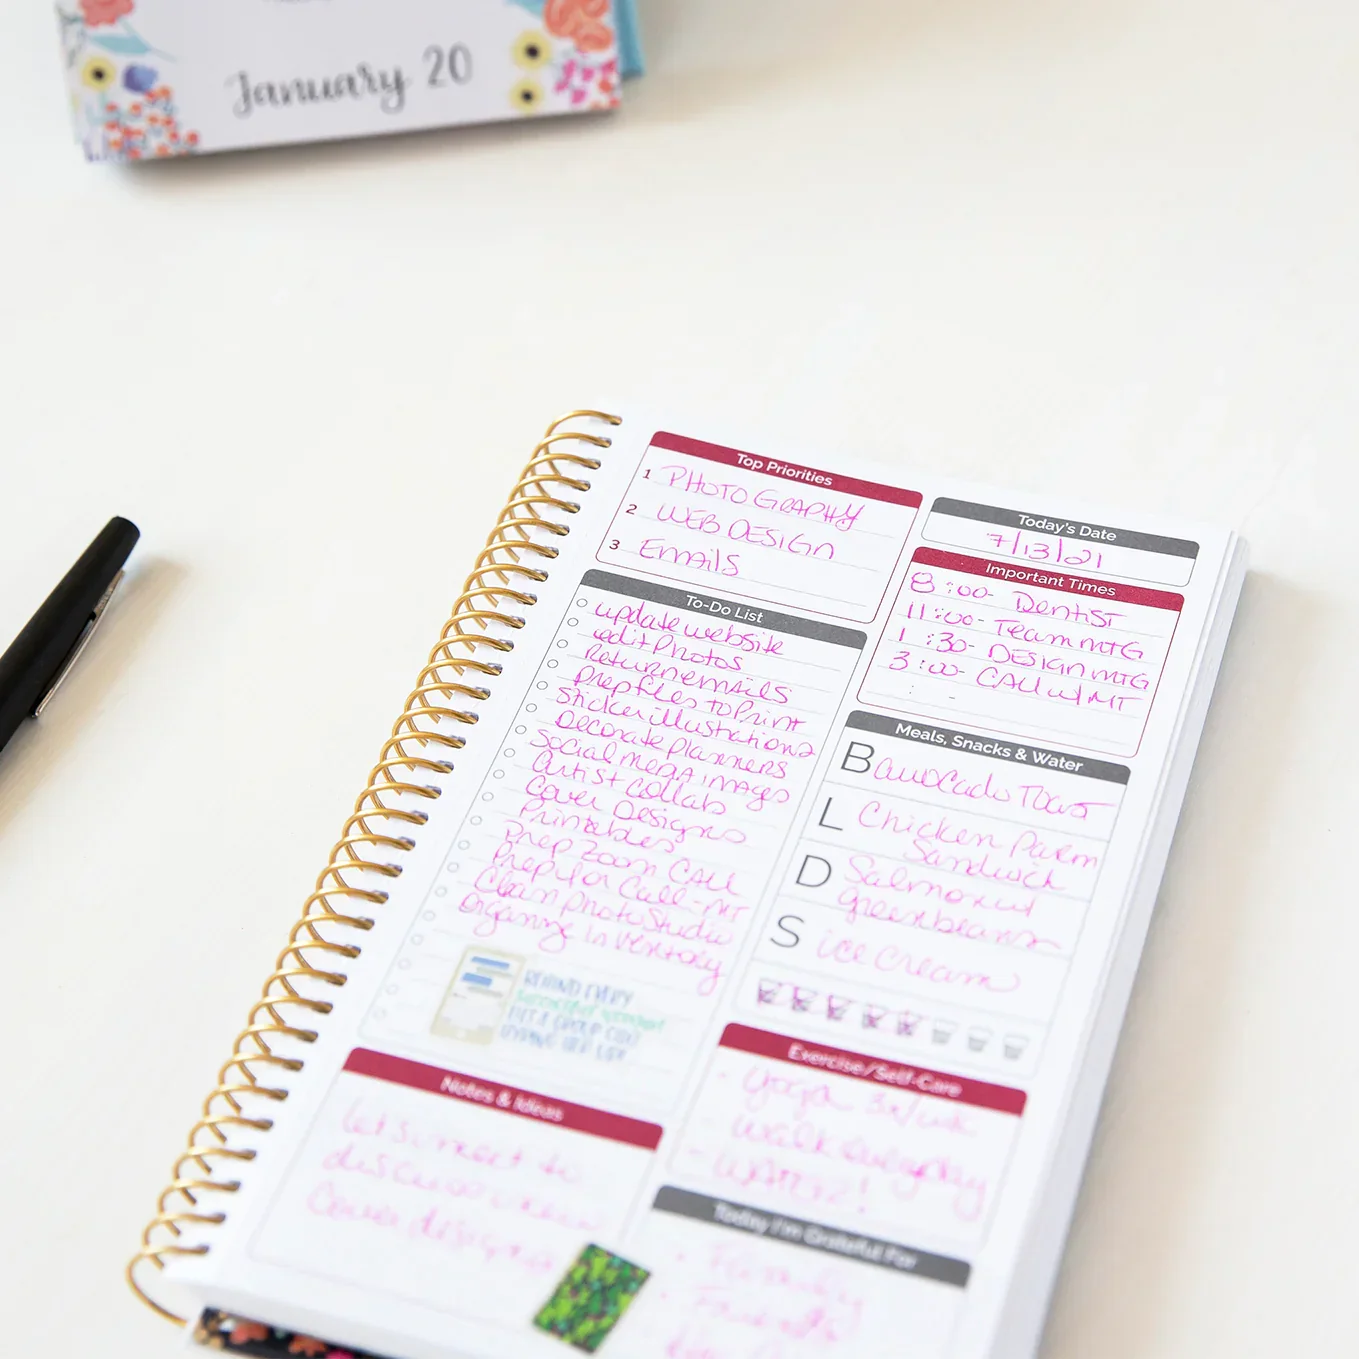 January 20
Top Priorities
1 PHOTOGRAPHY
2 WEB DESIGN
3 Emails
To-Do List
update website
edit Photos
Return emails
Prep files to Print
Sticker illustrations
Decorate planners
Social media images
Artist collabs
Cover Designs
Printables
Prep Zoom CALL
Prep for Call-MT
Clean photo Studio
Organize Inventory
BEHIND EVERY
SUCCESSFUL WOMAN
Notes & Ideas
Let's meet to
discuss new
cover designs
Today's Date
7/13/21
Important Times
8:00- Dentist
11:00- Team MTG
1:30- DESIGN MTG
3:00- CALL w/ MT
: -
Meals, Snacks & Water
B avocado Toast
L Chicken Parm
Sandwich
D Salmon
green beans
S ice cream
Exercise/Self-Care
- Yoga 3x/wk
- walk everyday
- WATER!
Today I'm Grateful For
- Family
- Friends